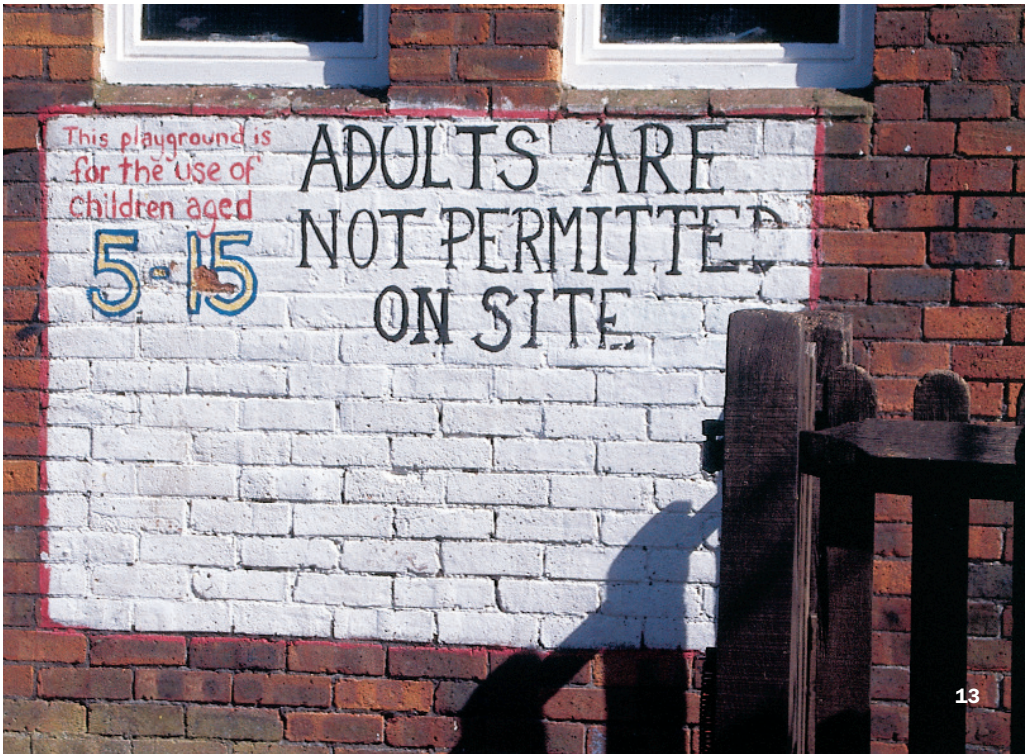 This playground is
for the use of
children aged
5-15
ADULTS ARE
NOT PERMITTED
ON SITE
13